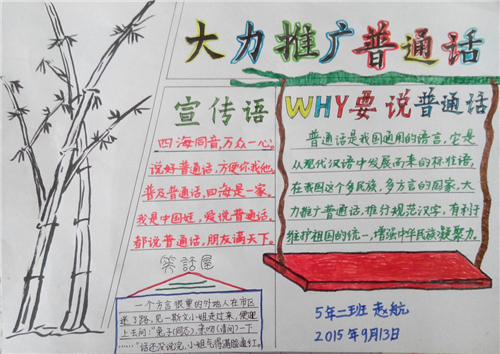 大力推广普通话
宣传语
四海同音,万众一心。
说好普通话,方便你我他。
普及普通话,四海是一家。
我是中国娃,爱说普通话。
都说普通话,朋友满天下。
WHY要说普通话
普通话是我国通用的语言,它是
从现代汉语中发展而来的标准语。
在我国这个多民族,多方言的国家,大
力推广普通话,推行规范汉字,有利于
维护祖国的统一,增强中华民族凝聚力。
笑话屋
一个方言很重的外地人在市区
迷了路,见一斯文小姐走过来,便迎
上去问:"兔子(同志),亲吻(请问)一下
……"话还没说完,小姐气得满脸通红。
5年二班 赵航
2015年9月13日